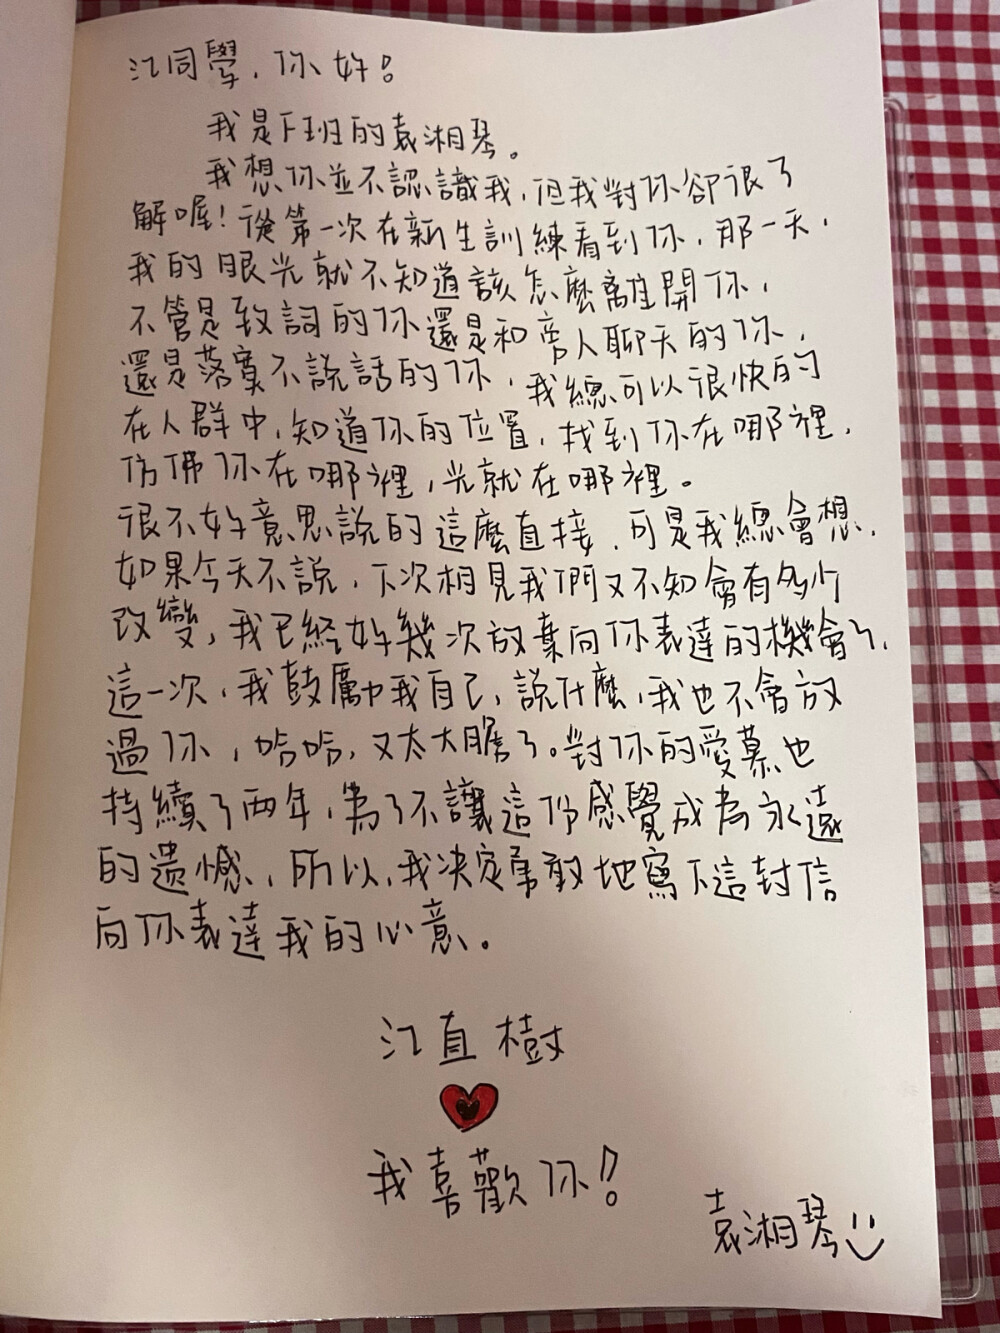 江同學，你好！
我是F班的袁湘琴。
我想你並不認識我，但我對你卻很了
解喔！從第一次在新生訓練看到你，那一天，
我的眼光就不知道該怎麼離開你，
不管是致詞的你還是和旁人聊天的你，
還是落寞不說話的你，我總可以很快的
在人群中，知道你的位置，找到你在哪裡，
彷彿你在哪裡，光就在哪裡。
很不好意思說的這麼直接，可是我總會想，
如果今天不說，下次相見我們又不知會有多少
改變，我已經好幾次放棄向你表達的機會了，
這一次，我鼓勵我自己，說什麼，我也不會放
過你，哈哈，又太大膽了。對你的愛慕也
持續了兩年，為了不讓這份感覺成為永遠
的遺憾，所以，我決定勇敢地寫下這封信
向你表達我的心意。
江直樹
我喜歡你！
袁湘琴